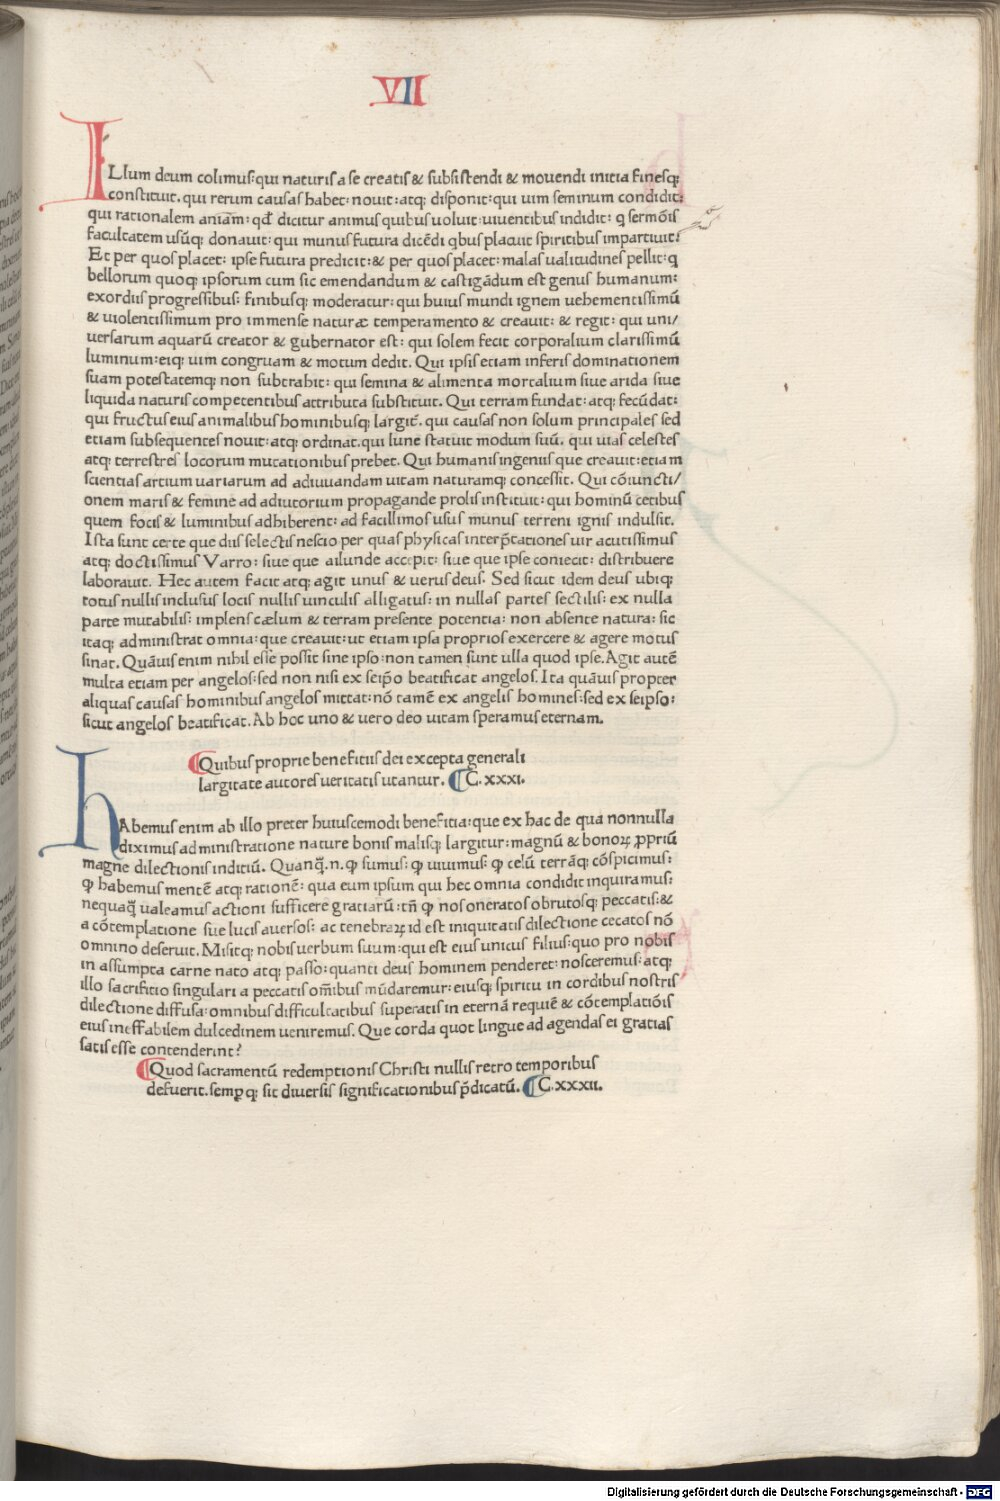 VII
ILlum deum colimus: qui naturis a se creatis & subsistendi & mouendi initia finesq;
constituit. qui rerum causas habet: nouit: atq; disponit: qui uim seminum condidit:
qui rationalem aniam̄: qđ dicitur animus quibus uoluit: uiuentibus indidit: q sermōis
facultatem usūq; donauit: qui munus futura dicēdi qbus placuit spiritibus impartiuit:
Et per quos placet: ipse futura predicit: & per quos placet: malas ualitudines pellit: q
bellorum quoq; ipsorum cum sic emendandum & castigādum est genus humanum:
exordiis progressibus: finibusq; moderatur: qui huius mundi ignem uehementissimū
& uiolentissimum pro immense naturæ temperamento & creauit: & regit: qui uni/
uersarum aquarū creator & gubernator est: qui solem fecit corporalium clarissimū
luminum: eiq; uim congruam & motum dedit. Qui ipsis etiam inferis dominationem
suam potestatemq; non subtrahit: qui semina & alimenta mortalium siue arida siue
liquida naturis competentibus attributa substituit. Qui terram fundat: atq; fecūdat:
qui fructus eius animalibus hominibusq; largit᷑. qui causas non solum principales sed
etiam subsequentes nouit: atq; ordinat. qui lune statuit modum suū. qui uias celestes
atq; terrestres locorum mutationibus prebet. Qui humanis ingeniis que creauit: etiam
scientias artium uariarum ad adiuuandam uitam naturamq; concessit. Qui cōiuncti/
onem maris & femine ad adiutorium propagande prolis instituit: qui hominū cetibus
quem focis & luminibus adhiberent: ad facillimos usus munus terreni ignis indulsit.
Ista sunt certe que diis selectis nescio per quas physicas interp̄tationes uir acutissimus
atq; doctissimus Varro: siue que aliunde accepit: siue que ipse coniecit: distribuere
laborauit. Hec autem facit atq; agit unus & uerus deus. Sed sicut idem deus ubiq;
totus nullis inclusus locis nullis uinculis alligatus: in nullas partes sectilis: ex nulla
parte mutabilis: implens cælum & terram presente potentia: non absente natura: sic
itaq; administrat omnia: que creauit: ut etiam ipsa proprios exercere & agere motus
sinat. Quāuis enim nihil esse possit sine ipso: non tamen sunt ulla quod ipse. Agit autē
multa etiam per angelos: sed non nisi ex seip̄o beatificat angelos. Ita quāuis propter
aliquas causas hominibus angelos mittat: nō tamē ex angelis homines: sed ex seipso:
sicut angelos beatificat. Ab hoc uno & uero deo uitam speramus eternam.
¶Quibus proprie benefitiis dei excepta generali
largitate autores ueritatis utantur. ¶C. xxxi.
hAbemus enim ab illo preter huiuscemodi benefitia: que ex hac de qua nonnulla
diximus administratione nature bonis malisq; largitur: magnū & bonoꝝ ꝓpriū
magne dilectionis inditiū. Quanq̄. n. ꝙ sumus: ꝙ uiuimus: ꝙ celū terrāq; cōspicimus:
ꝙ habemus mentē atq; rationē: qua eum ipsum qui hec omnia condidit inquiramus:
nequaq̄ ualeamus actioni sufficere gratiarū: tn̄ ꝙ nos oneratos obrutosq; peccatis: &
a cōtemplatione sue lucis auersos: ac tenebraꝝ id est iniquitatis dilectione cecatos nō
omnino deseruit. Misitq; nobis uerbum suum: qui est eius unicus filius: quo pro nobis
in assumpta carne nato atq; passo: quanti deus hominem penderet: nosceremus: atq;
illo sacrifitio singulari a peccatis om̄ibus mūdaremur: eiusq; spiritu in cordibus nostris
dilectione diffusa: omnibus difficultatibus superatis in eternā requiē & cōtemplatiōis
eius ineffabilem dulcedinem ueniremus. Que corda quot lingue ad agendas ei gratias
satis esse contenderint?
¶Quod sacramentū redemptionis Christi nullis retro temporibus
defuerit. sempq; sit diuersis significationibus p̄dicatū. ¶C. xxxii.
Digitalisierung gefördert durch die Deutsche Forschungsgemeinschaft - DFG